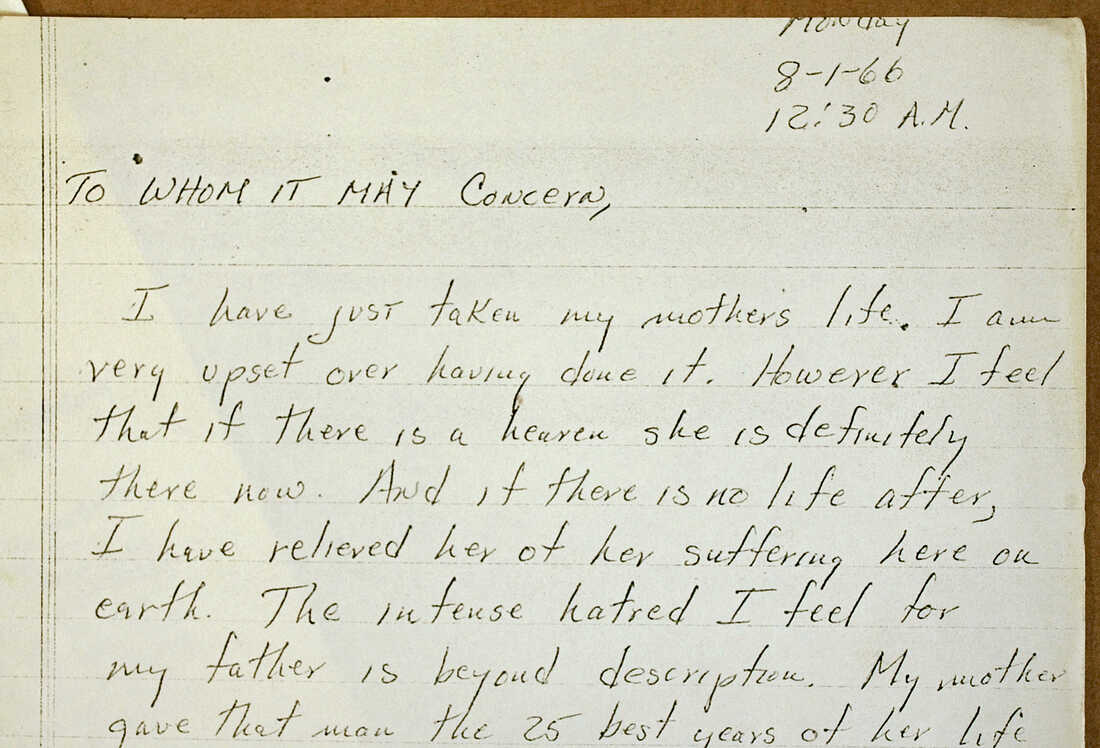 Monday
8-1-66
12:30 A.M.
TO WHOM IT MAY CONCERN,
I have just taken my mothers life. I am
very upset over having done it. However I feel
that if there is a heaven she is definitely
there now. And if there is no life after,
I have relieved her of her suffering here on
earth. The intense hatred I feel for
my father is beyond description. My mother
gave that man the 25 best years of her life